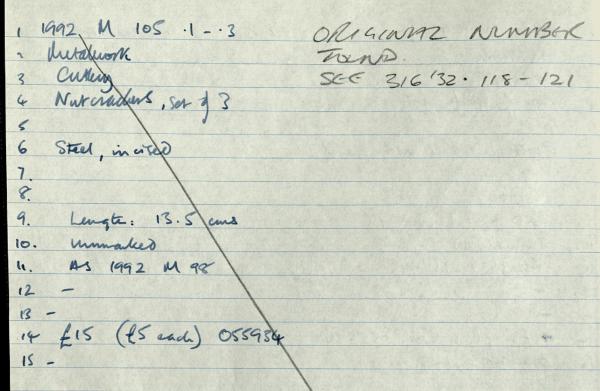 1 1992 M 105 .1 - .3
2 Metalwork
3 Cutlery
4 Nutcrackers, set of 3
5
6 Steel, incised
7.
8.
9. Length: 13.5 cms
10. Unmarked
11. AS 1992 M 98
12 -
13 -
14 £15 (£5 each) 055934
15 -
ORIGINAL NUMBER
FOUND.
SEE 316'32.118-121